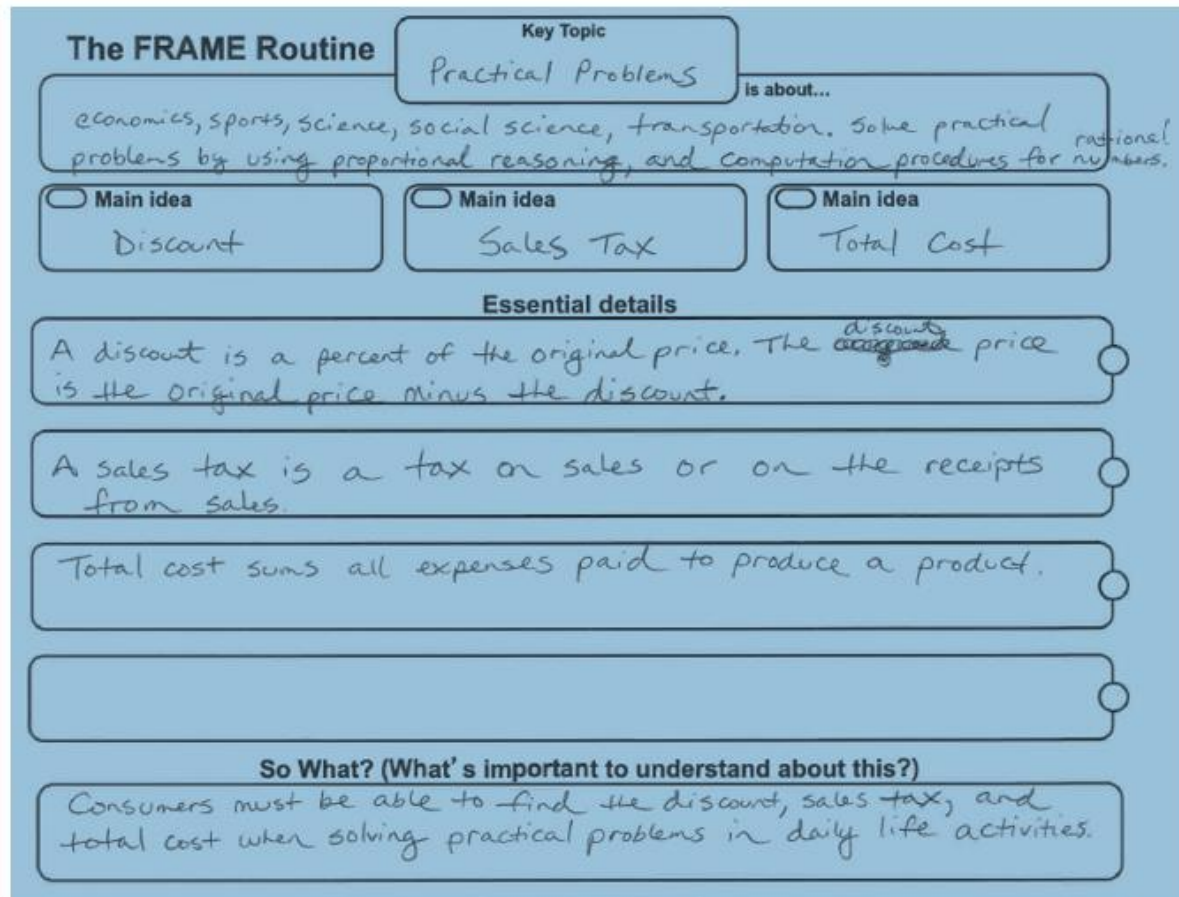 The FRAME Routine
Key Topic
Practical Problems
is about...
economics, sports, science, social science, transportation. Solve practical
problems by using proportional reasoning, and computation procedures for rational numbers.
Main idea
Discount
Main idea
Sales Tax
Main idea
Total Cost
Essential details
A discount is a percent of the original price. The discount price
is the original price minus the discount.
A sales tax is a tax on sales or on the receipts
from sales.
Total cost sums all expenses paid to produce a product.
So What? (What's important to understand about this?)
Consumers must be able to find the discount, sales tax, and
total cost when solving practical problems in daily life activities.